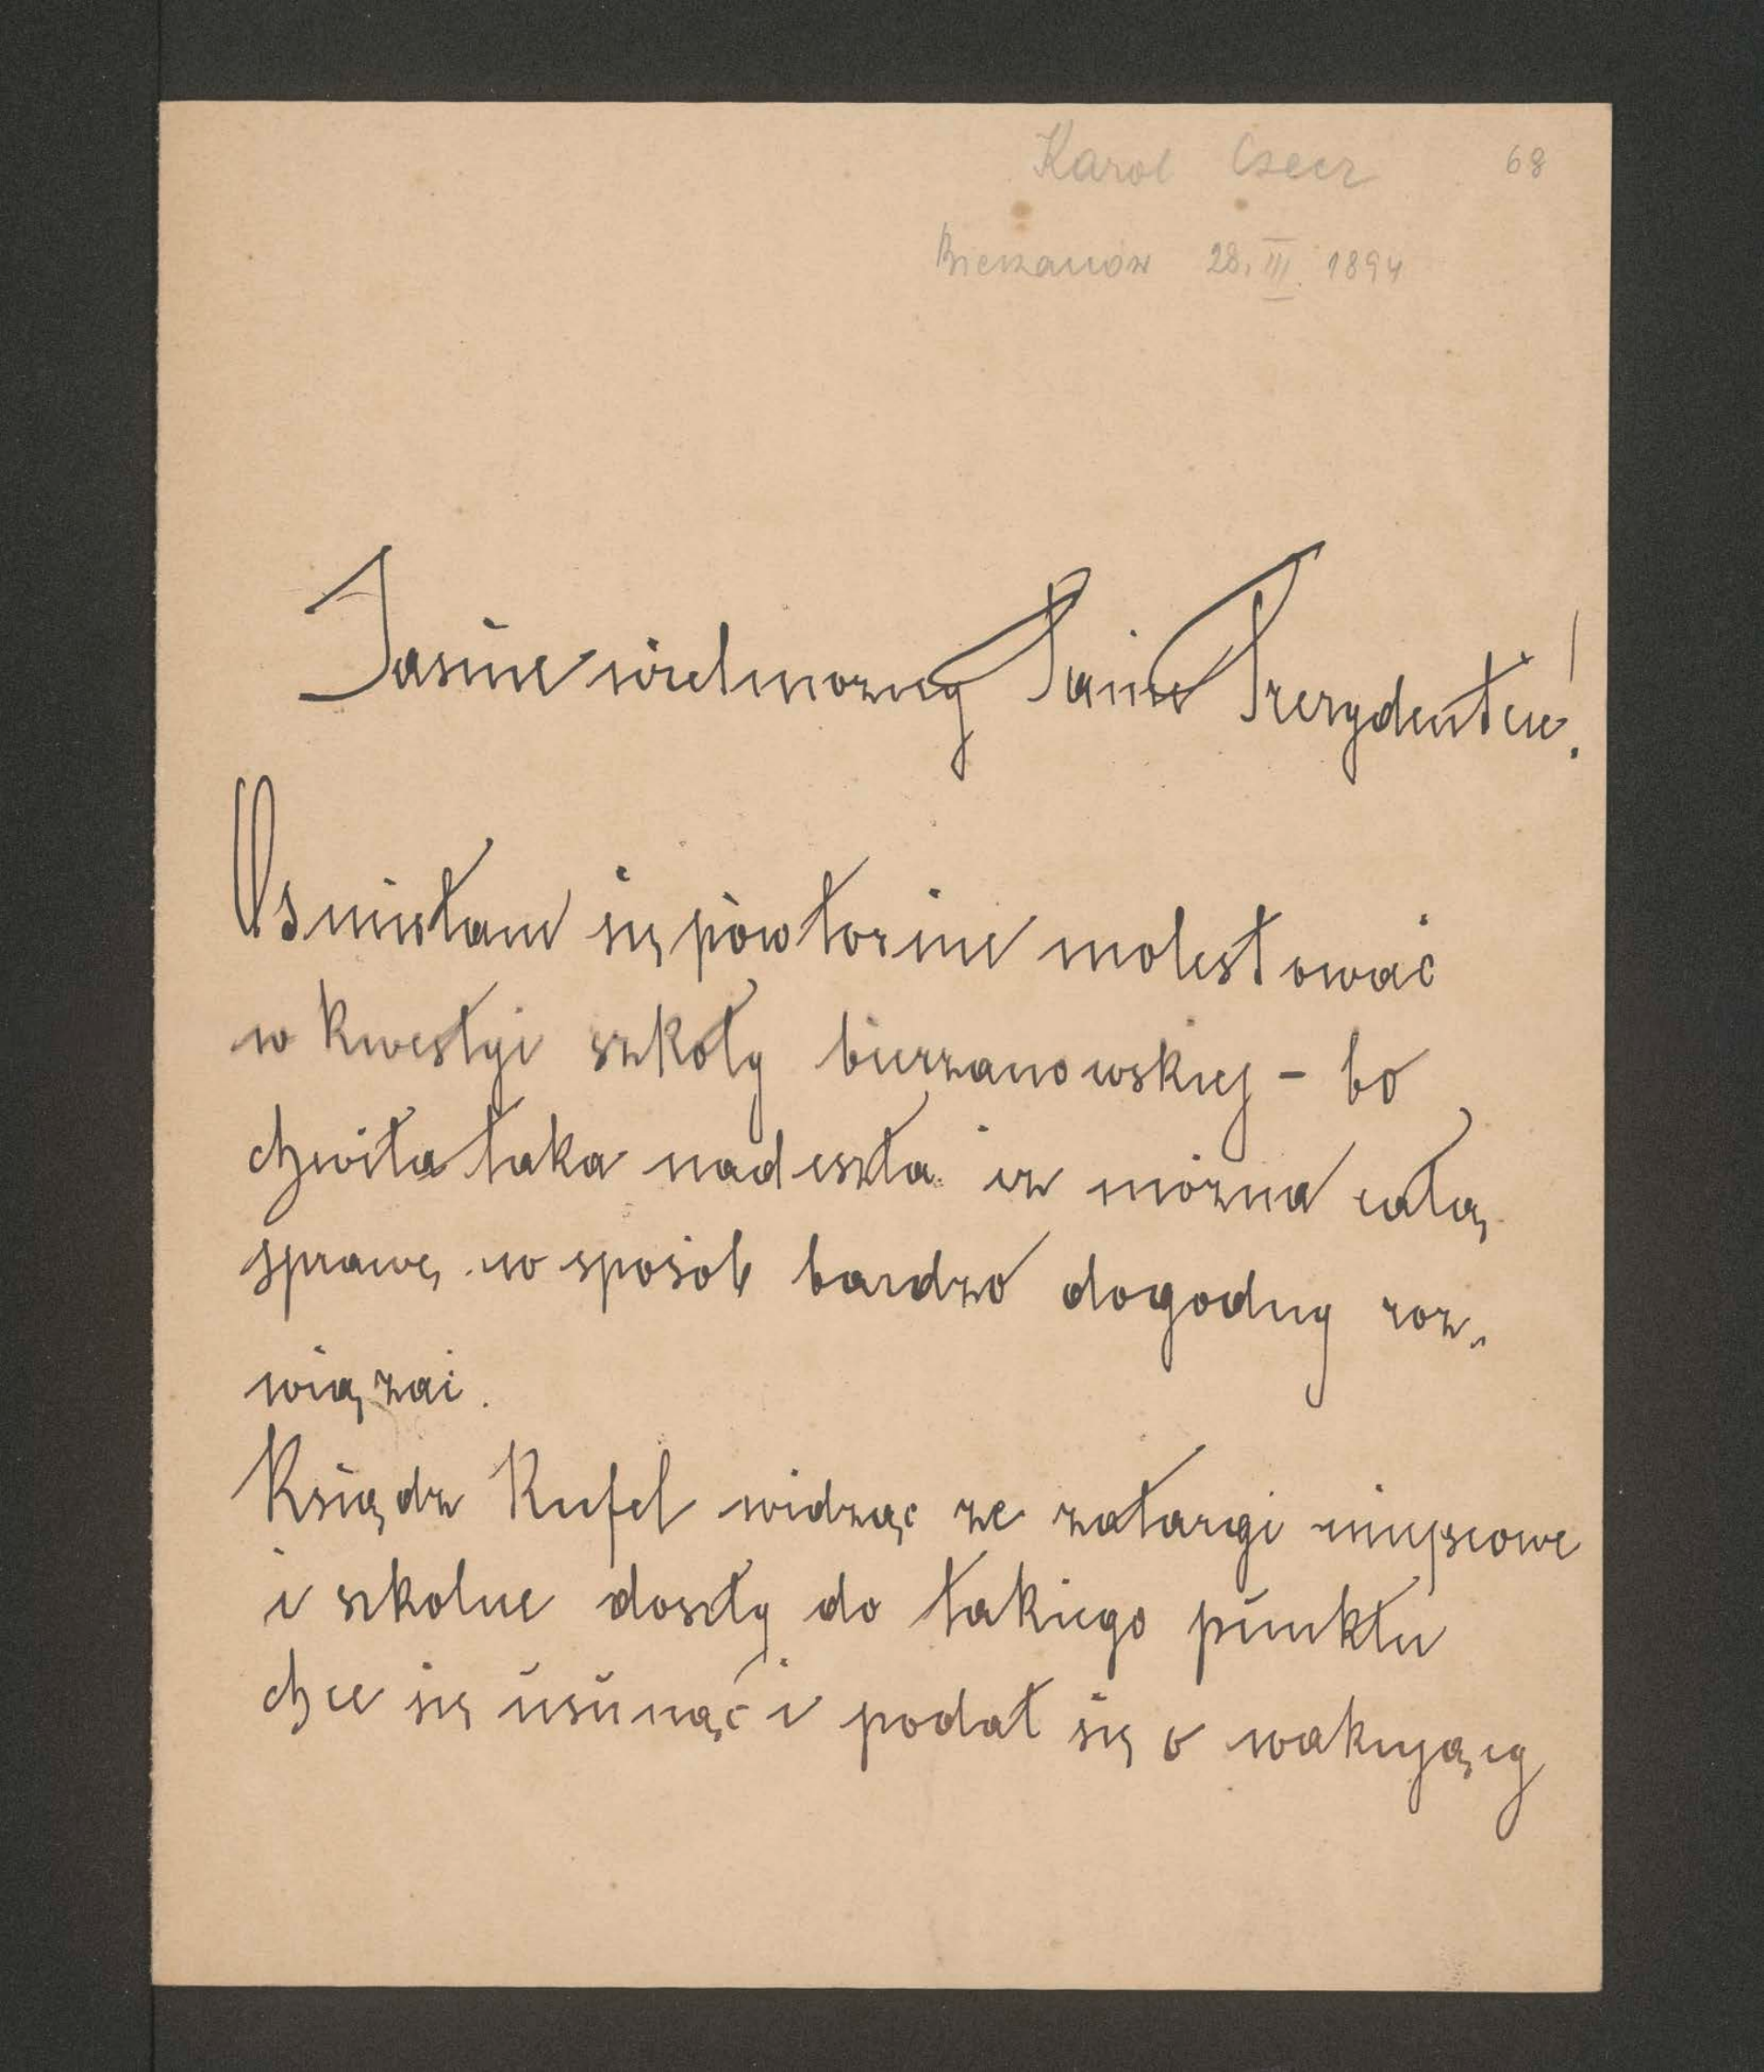 Karol Czecz 68
Bieżanów 28. III. 1894
Jaśnie wielmożny Panie Prezydencie!
Ośmielam się powtórnie molestować
w kwestyi szkoły bierzanowskiej – bo
chwila taka nadeszła iż można całą
sprawę w sposób bardzo dogodny roz-
wiązać.
Ksiądz Kufel widząc że zatargi miejscowe
i szkolne doszły do takiego punktu
chce się usunąć i podał się o wakujący